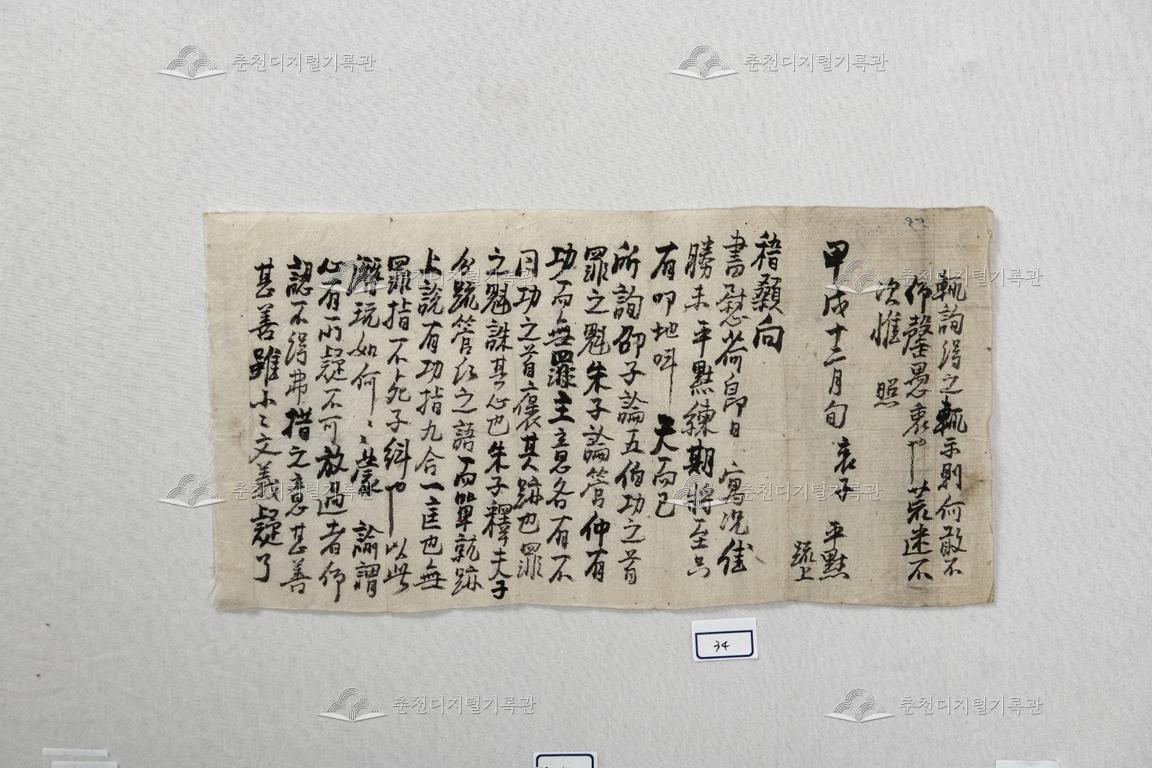 稽顙向
書慰荷昻日 寓況佳
勝未 平默練期將至只
有叩地呌 天而已
所詢邵子論五伯功之首
罪之魁朱子論管仲有
功而無罪主意各有不
同功之首褒其跡也罪
之魁誅其心也朱子釋夫子
分疏管仲之語而單就跡
上說有功指九合一匡也無
罪指不死子糾也 以此
解玩如何〻〻 蒙 諭謂
心有所疑不可放過者仰
認不得弗措之意甚善
甚善雖小〻文義疑了
輒詢得之輒示則何敢不
仰罄愚衷也 荒迷不
次惟 照
甲戌十二月旬 哀子 平默
疏上
34
춘천디지털기록관
춘천디지털기록관
춘천디지털기록관
춘천디지털기록관
춘천디지털기록관
춘천디지털기록관
춘천디지털기록관
춘천디지털기록관